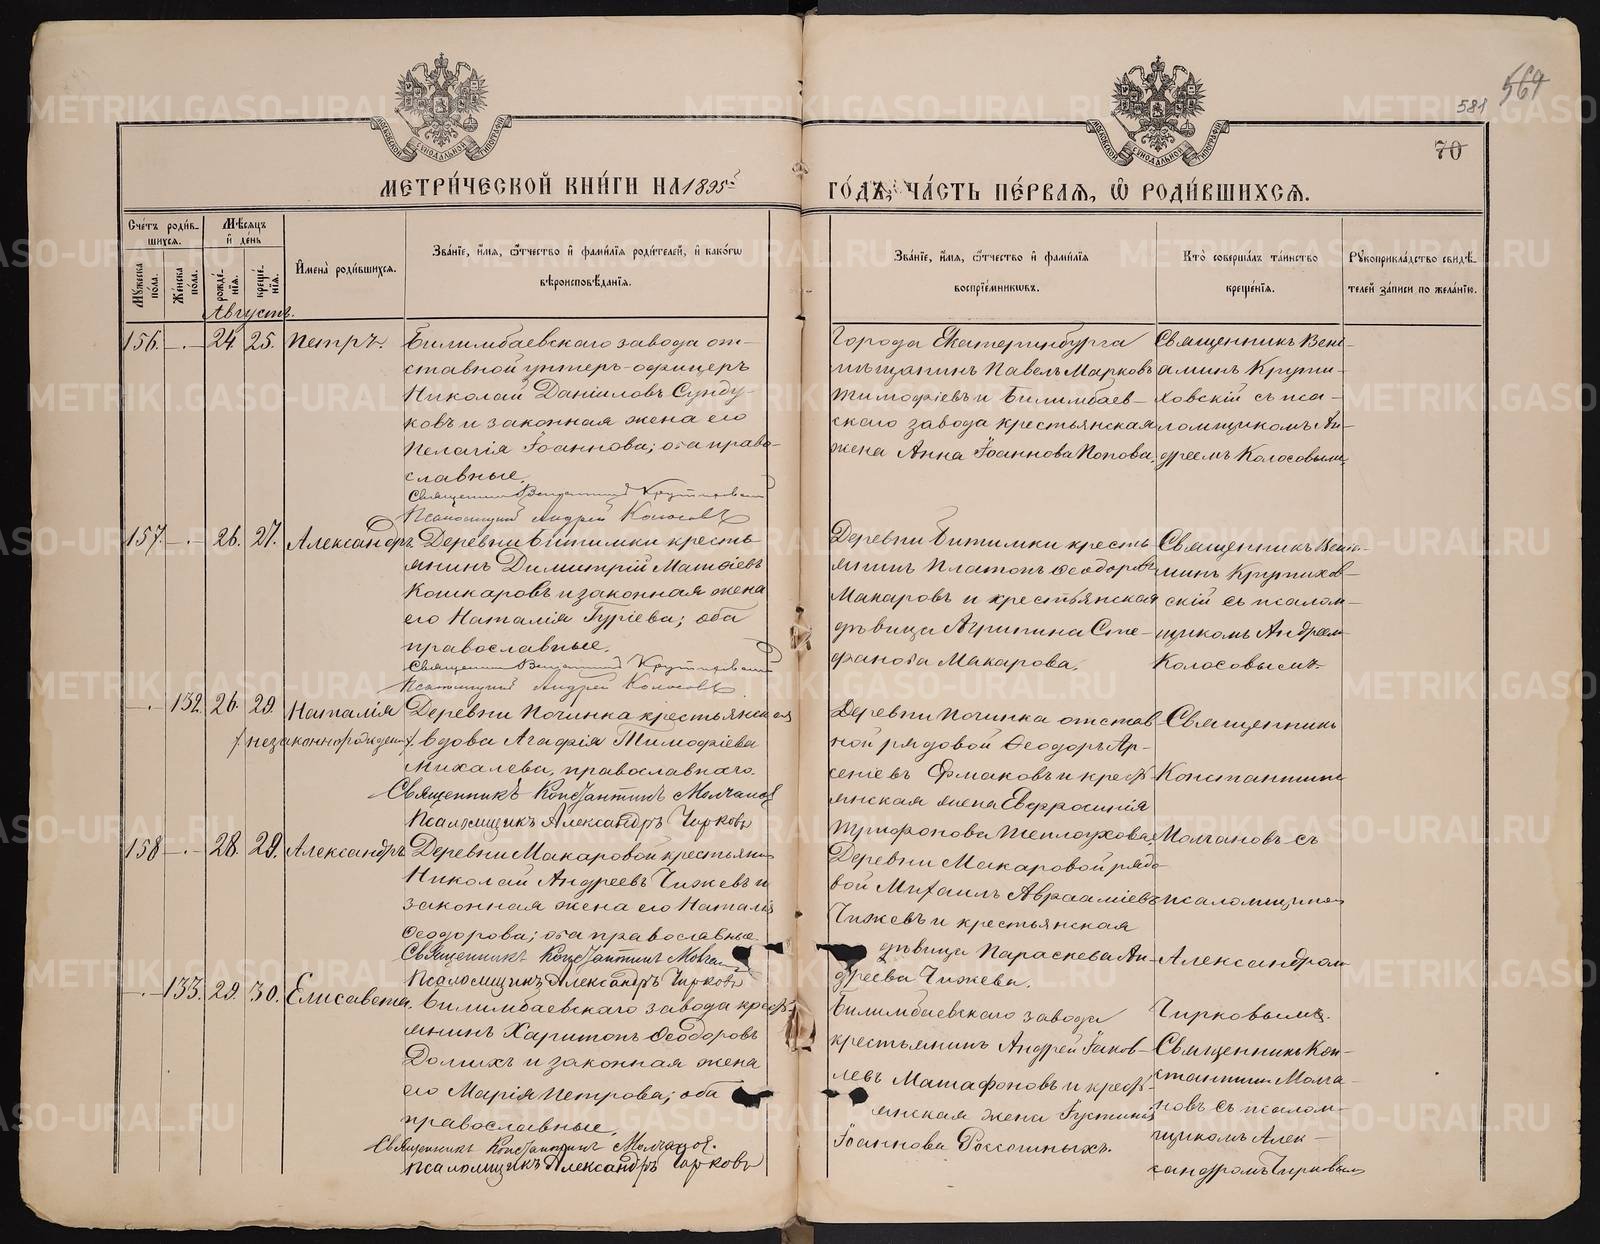 569
581
70
МОСКОВСКОЙ СѴНОДАЛЬНОЙ ТИПОГРАФІИ
МОСКОВСКОЙ СѴНОДАЛЬНОЙ ТИПОГРАФІИ
МЕТРИ́ЧЕСКОЙ КНИ́ГИ НА 1895й
ГО́ДЪ, ЧА́СТЬ ПЕ́РВАѦ, Ѡ҆ РОДИ́ВШИХСѦ.
Сче́тъ роди́в-
шихсѧ.
Мꙋ́жеска по́ла.
Же́нска по́ла.
Мѣ́сѧцъ
и҆ де́нь
рожде́-
нїѧ.
креще́-
нїѧ.
И҆мена̀ роди́вшихсѧ.
Зва́нїе, и҆́мѧ, ѻ҆́тчество и҆ фами́лїѧ роди́телей, и҆ како́гѡ
вѣроисповѣ́данїѧ.
Зва́нїе, и҆́мѧ, ѻ҆́тчество и҆ фами́лїѧ
воспрїе́мникѡвъ.
Кто̀ соверша́лъ та́инство
креще́нїѧ.
Рꙋкоприкла́дство свидѣ́-
телей за́писи по жела́нїю.
Августъ.
156. — . — 24. 25. Петръ.
Билимбаевскаго завода от-
ставной унтеръ-офицеръ
Николай Даніиловъ Сунду-
ковъ и законная жена его
Пелагія Іоаннова; оба право-
славные.
Священникъ Веніаминъ Крутиховскій
Псаломщикъ Андрей Колосовъ
Города Екатеринбурга
мѣщанинъ Павелъ Марковъ
Тимофіевъ и Билимбаев-
скаго завода крестьянская
жена Анна Іоаннова Попова.
Священникъ Вені-
аминъ Крути-
ховскій съ пса-
ломщикомъ Ан-
дреемъ Колосовымъ.
157. — . — 26. 27. Александръ.
Деревни Битимки кресть-
янинъ Димитрій Матѳіевъ
Кошкаровъ и законная жена
его Наталія Гуріева; оба
православные.
Священникъ Веніаминъ Крутиховскій
Псаломщикъ Андрей Колосовъ.
Деревни Битимки кресть-
янинъ Платонъ Ѳеодоровъ
Макаровъ и крестьянская
дѣвица Агрипина Сте-
фанова Макарова.
Священникъ Веніа-
минъ Крутихов-
скій съ псалом-
щикомъ Андреемъ
Колосовымъ.
— . 132. 26. 29. Наталія
/незаконнорожден./
Деревни Починка крестьянская
вдова Агафія Тимофіева
Михалева, православнаго.
Священникъ Константинъ Молчановъ
Псаломщикъ Александръ Чирковъ
Деревни Починка отстав-
ной рядовой Ѳеодоръ Ар-
сеніевъ Ермаковъ и кресть-
янская жена Евфросинія
Трифонова Теплоухова.
Священникъ
Константинъ
Молчановъ съ
псаломщикомъ
Александромъ
Чирковымъ.
158 — . — 28. 29. Александръ
Деревни Макаровой крестьянинъ
Николай Андреевъ Чижевъ и
законная жена его Наталія
Ѳеодорова; оба православные.
Священникъ Константинъ Молчановъ
Псаломщикъ Александръ Чирковъ
Деревни Макаровой рядо-
вой Михаилъ Авраамiевъ
Чижевъ и крестьянская
дѣвица Параскева Ан-
дреева Чижева.
— . — 133. 29. 30. Елисавета.
Билимбаевскаго завода кресть-
янинъ Харитонъ Ѳеодоровъ
Долихъ и законная жена
его Марія Петрова; оба
православные.
Священникъ Константинъ Молчановъ.
Псаломщикъ Александръ Чирковъ
Билимбаевскаго завода
крестьянинъ Андрей Іаков-
левъ Матафоновъ и кресть-
янская жена Іустинія
Іоаннова Россошныхъ.
Священникъ Кон-
стантинъ Молча-
новъ съ псалом-
щикомъ Алек-
сандромъ Чирковымъ
METRIKI.GASO-URAL.RU